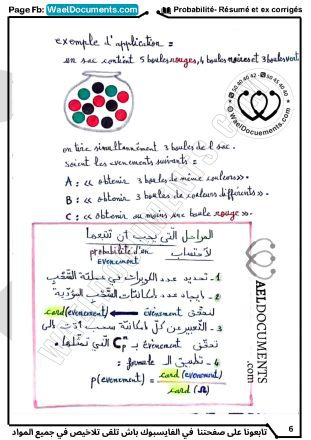 Page Fb: WaelDocuments.com
Probabilité- Résumé et ex corrigés
exemple d'application :
un sac contient 5 boules rouges, 4 boules noires et 3 boules vert
WaelDocuements.com
on tire simultanément 3 boules de l sac.
soient les evenements suivants :
A : « obtenir 3 boules de même couleurs ».
B : « obtenir 3 boules de couleurs différents ».
C : « obtenir au moins une boule rouge ».
المراحل التي يجب أن تتبعها
لاحتساب probabilité d'un evenement
1- تحديد عدد الكويرات في عملية السحب
2- ايجاد امكانيات السحب المؤدية
لتحقق évènement ← card(evenement)
3- التعبير عن كل امكانية سحب أدت إلى
تحقق évènement ب Cₙᵖ التي تمثلها.
4- تطبيق ال formule :
p(evenement) = card(evenement) / card(Ω)
WAELDOCUMENTS
.com
تابعونا على صفحتنا في الفايسبوك باش تلقى تلاخيص في جميع المواد
6